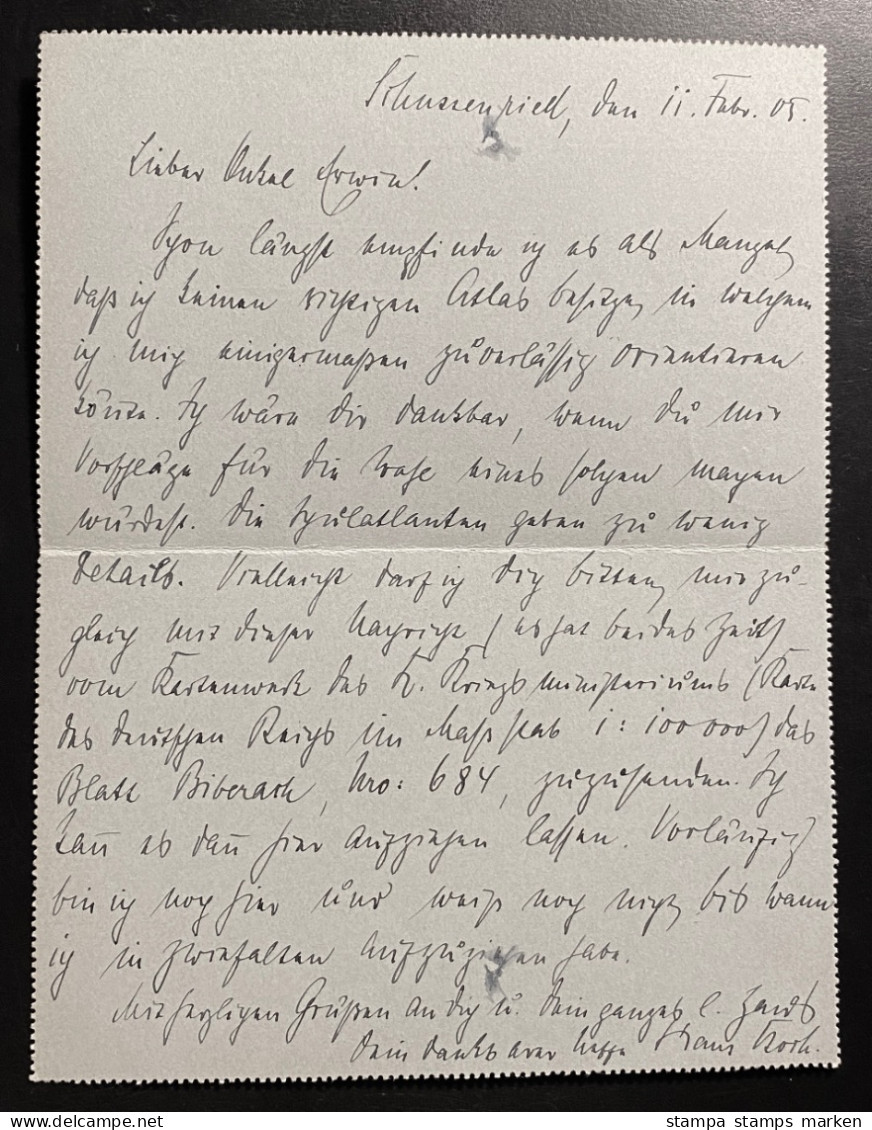 Schussenried, den 11. Febr. 05.
Lieber Onkel Erwin!
Schon längst empfinde ich es als Mangel,
daß ich keinen richtigen Atlas besitze, in welchem
ich mich einigermaßen zuverlässig orientieren
könte. Ich wäre dir dankbar, wenn du mir
Vorschläge für die Wahl eines solchen machen
würdest. Die Schulatlanten geben zu wenig
Details. Vielleicht darf ich dich bitten, mir zu-
gleich mit dieser Nachricht (es hat beides Zeit)
vom Kartenwerk des K. Kriegsministeriums (Karte
des deutschen Reichs im Massstab 1:100 000) das
Blatt Biberach, Nro: 684, zuzusenden. Ich
kan̄ es dan̄ hier aufziehen lassen. Vorläufig
bin ich noch hier und weiß noch nicht, bis wann
ich in Zwiefalten aufzuziehen habe.
Mit herzlichen Grüßen an dich u. dein ganzes l. Haus
dein dankbarer Neffe Hans Koch.
stampa stamps marken